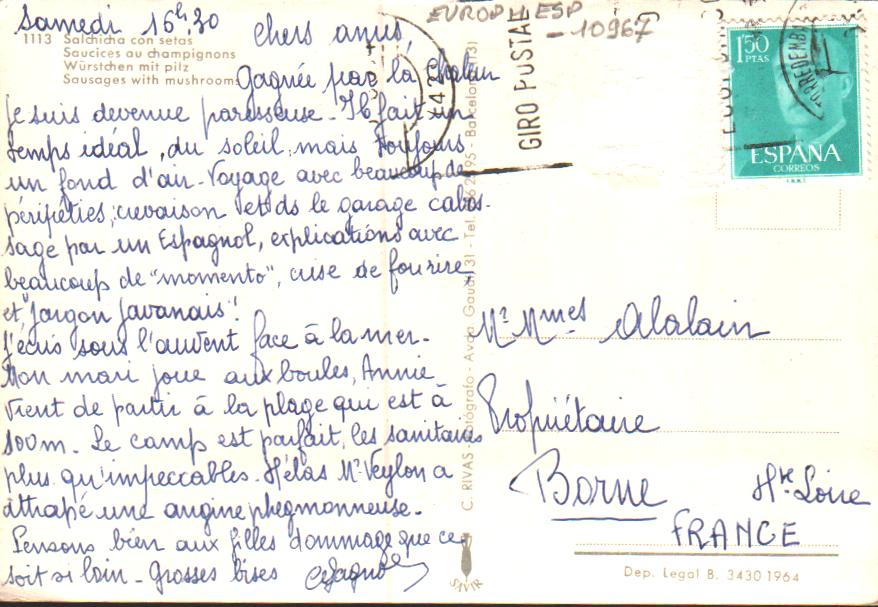 Samedi 16h,30
chers amis,
1113 Salchicha con setas
Saucices au champignons
Würstchen mit pilz
Sausages with mushrooms
Gagnée par la chaleur
je suis devenue paresseuse - Il fait un
temps idéal, du soleil, mais toujours
un fond d'air - Voyage avec beaucoup de
péripéties, crevaison et ds le garage cabos-
sage par un Espagnol, explications avec
beaucoup de "momento", crise de fou rire,
et "jargon javanais"!
J'écris sous l'auvent face à la mer -
Mon mari joue aux boules, Annie
vient de partir à la plage qui est à
500m - Le camp est parfait, les sanitaires
plus qu'impeccables - Hélas Mr Veylon a
attrapé une angine phegmonneuse -
Pensons bien aux filles dommage que ce
soit si loin - Grosses bises
EUROP II ESP
- 10967
GIRO POSTAL
TORREDEMB
1'50
PTAS
ESPAÑA
CORREOS
C. RIVAS - Fotógrafo - Avda. Gaudí, 31 - Tel.
Barcelona
Mr Mmes Alalain
Propriétaire
Borne Hte Loire
FRANCE
SAVIR
Dep. Legal B. 3430 1964